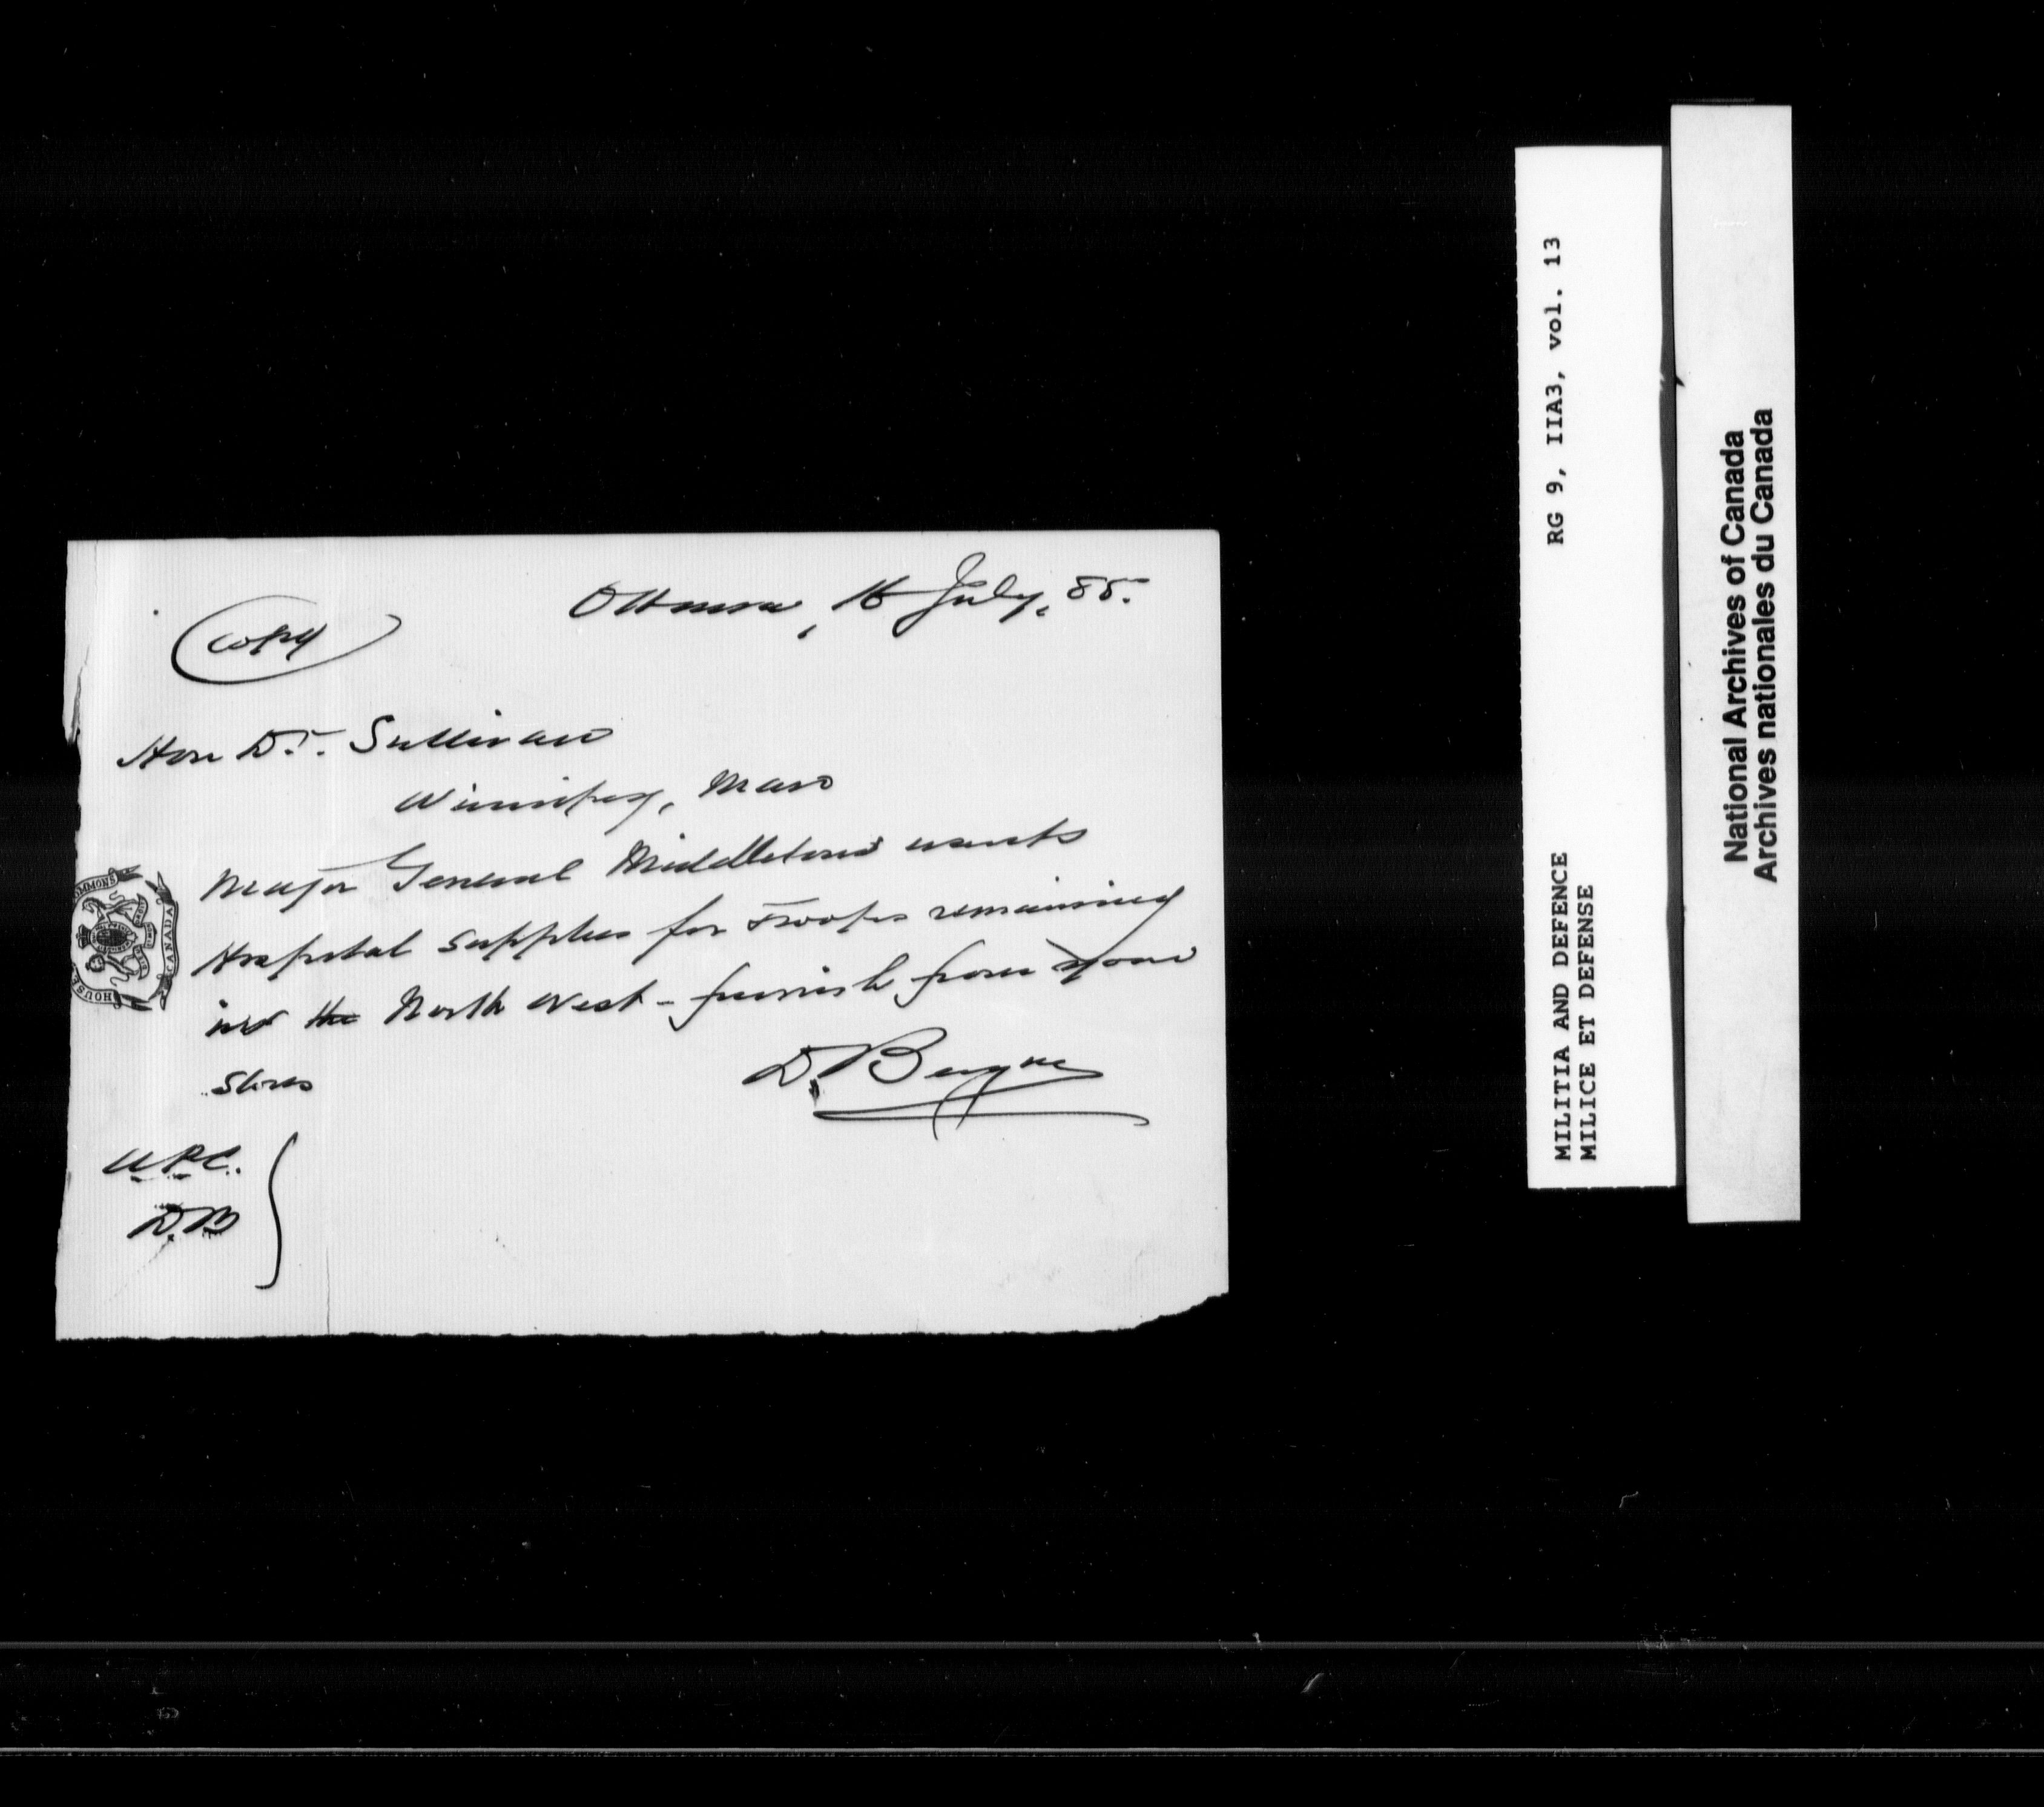 Ottawa, 16 July, 85.
Copy
Hon Dr. Sullivan
Winnipeg, Man
Major General Middleton wants
Hospital supplies for Troops remaining
in the North West - furnish from your
stores
D. Bergin
D.B
HOUSE COMMONS
CANADA
RG 9, IIA3, vol. 13
MILITIA AND DEFENCE
MILICE ET DEFENSE
National Archives of Canada
Archives nationales du Canada